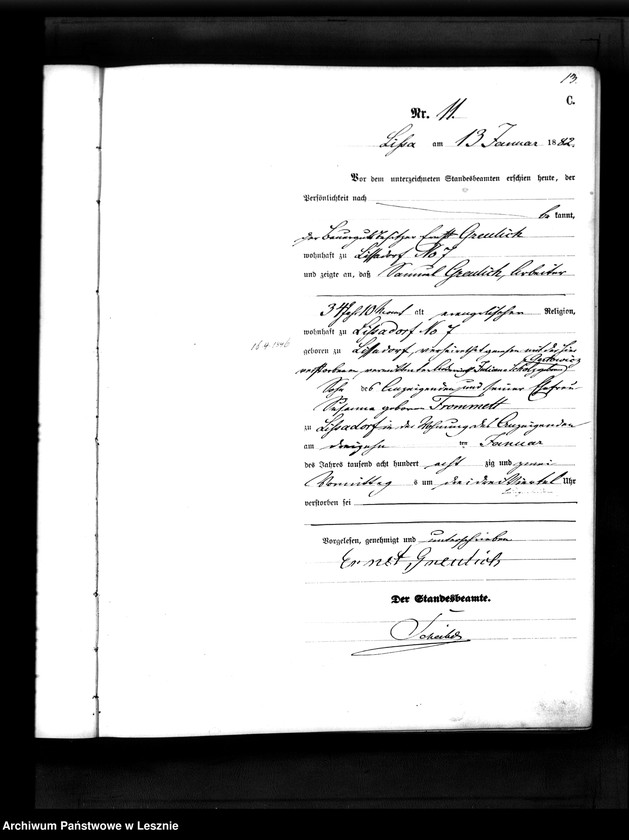 13.
C.
Nr. 11.
Lissa am 13 Januar 1882.
Vor dem unterzeichneten Standesbeamten erschien heute, der
Persönlichkeit nach
be kannt,
der Bauergutsbesitzer Ernst Greulich
wohnhaft zu Lissadorf No 7
und zeigte an, daß Samuel Greulich, Arbeiter
34 Jahr 10 Monat alt evangelischer Religion,
wohnhaft zu Lissadorf No 7
geboren zu Lissadorf, verheirathet gewesen mit der hier
verstorbenen verwittweten Juliane geborene
Sohn des Anzeigenden und seiner Ehefrau
Susanna geborene Frommelt
zu Lissadorf in der Wohnung des Anzeigenden
am dreizehn ten Januar
des Jahres tausend acht hundert acht zig und zwei
Vormittag s um drei drei Viertel Uhr
verstorben sei
Vorgelesen, genehmigt und unterschrieben
Ernst Greulich
Der Standesbeamte.
18.4.1446
Archiwum Państwowe w Lesznie